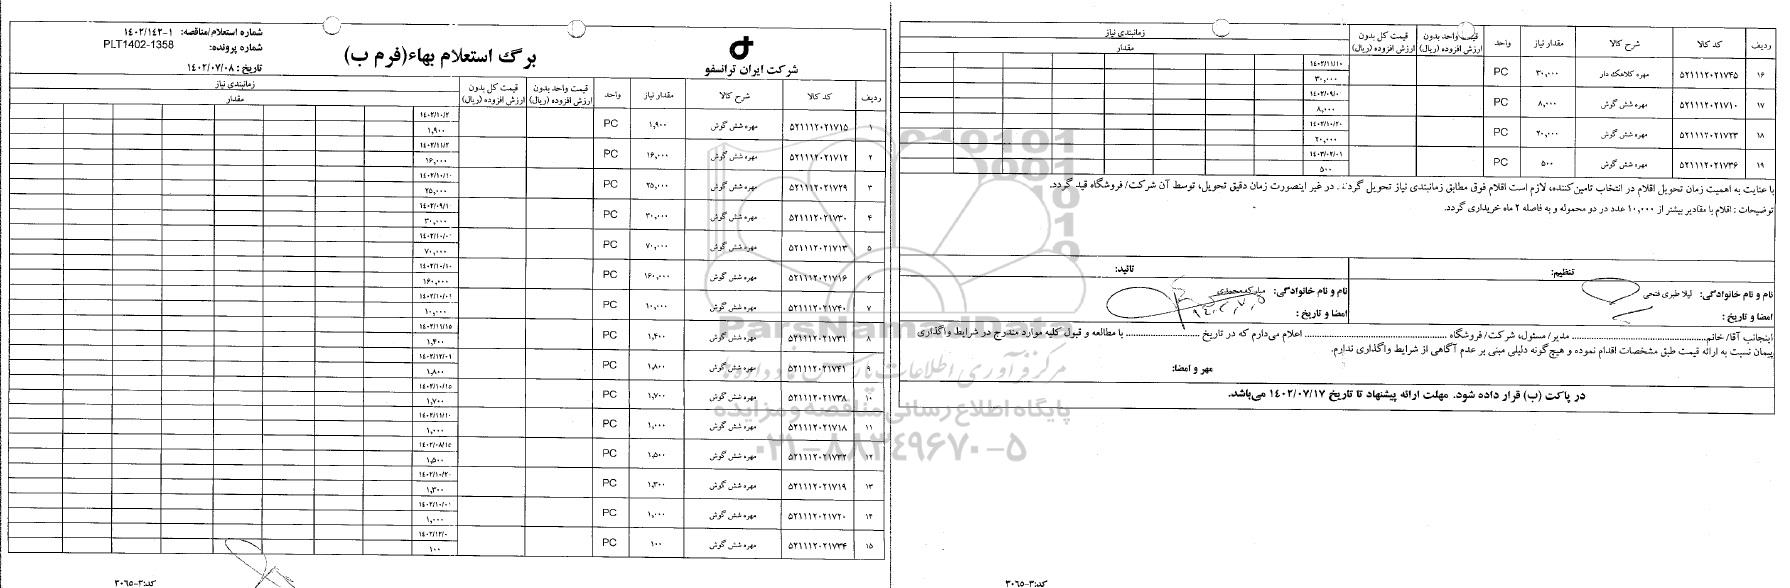 شماره استعلام/مناقصه: ۱-۱٤۰۲/۱٤۲
شماره پرونده: PLT1402-1358
تاریخ : ۱٤۰۲/۰۷/۰۸
برگ استعلام بهاء(فرم ب)
شرکت ایران ترانسفو
ردیف کد کالا شرح کالا مقدار نیاز واحد قیمت واحد بدون ارزش افزوده (ریال) قیمت کل بدون ارزش افزوده (ریال) زمانبندی نیاز
مقدار
۱ ۵۲۱۱۱۲۰۲۱۷۱۵ مهره شش گوش ۱,۹۰۰ PC ۱٤۰۲/۱۰/۲
۱,۹۰۰
۲ ۵۲۱۱۱۲۰۲۱۷۱۲ مهره شش گوش ۱۶,۰۰۰ PC ۱٤۰۲/۱۱/۲
۱۶,۰۰۰
۳ ۵۲۱۱۱۲۰۲۱۷۲۹ مهره شش گوش ۲۵,۰۰۰ PC ۱٤۰۲/۱۰/۱۰
۲۵,۰۰۰
۴ ۵۲۱۱۱۲۰۲۱۷۳۰ مهره شش گوش ۳۰,۰۰۰ PC ۱٤۰۲/۰۹/۱۰
۳۰,۰۰۰
۵ ۵۲۱۱۱۲۰۲۱۷۱۳ مهره شش گوش ۷۰,۰۰۰ PC ۱٤۰۲/۱۰/۰۱
۷۰,۰۰۰
۶ ۵۲۱۱۱۲۰۲۱۷۱۶ مهره شش گوش ۱۶۰,۰۰۰ PC ۱٤۰۲/۱۰/۱۰
۱۶۰,۰۰۰
۷ ۵۲۱۱۱۲۰۲۱۷۴۰ مهره شش گوش ۱۰,۰۰۰ PC ۱٤۰۲/۱۰/۰۱
۱۰,۰۰۰
۸ ۵۲۱۱۱۲۰۲۱۷۳۱ مهره شش گوش ۱,۴۰۰ PC ۱٤۰۲/۱۱/۱۵
۱,۴۰۰
۹ ۵۲۱۱۱۲۰۲۱۷۴۱ مهره شش گوش ۱,۸۰۰ PC ۱٤۰۲/۱۲/۰۱
۱,۸۰۰
۱۰ ۵۲۱۱۱۲۰۲۱۷۳۸ مهره شش گوش ۱,۷۰۰ PC ۱٤۰۲/۱۰/۱۵
۱,۷۰۰
۱۱ ۵۲۱۱۱۲۰۲۱۷۱۸ مهره شش گوش ۱,۰۰۰ PC ۱٤۰۲/۱۱/۱۰
۱,۰۰۰
۱۲ ۵۲۱۱۱۲۰۲۱۷۳۲ مهره شش گوش ۱,۵۰۰ PC ۱٤۰۲/۰۸/۱۵
۱,۵۰۰
۱۳ ۵۲۱۱۱۲۰۲۱۷۱۹ مهره شش گوش ۱,۳۰۰ PC ۱٤۰۲/۱۰/۲۰
۱,۳۰۰
۱۴ ۵۲۱۱۱۲۰۲۱۷۲۰ مهره شش گوش ۱,۰۰۰ PC ۱٤۰۲/۱۰/۰۱
۱,۰۰۰
۱۵ ۵۲۱۱۱۲۰۲۱۷۳۴ مهره شش گوش ۱۰۰ PC ۱٤۰۲/۱۲/۰
۱۰۰
کد:۳-۳۰۶۵
ردیف کد کالا شرح کالا مقدار نیاز واحد قیمت واحد بدون ارزش افزوده (ریال) قیمت کل بدون ارزش افزوده (ریال) زمانبندی نیاز
مقدار
۱۶ ۵۲۱۱۱۲۰۲۱۷۴۵ مهره کلاهک دار ۳۰,۰۰۰ PC ۱٤۰۲/۱۱/۱۰
۳۰,۰۰۰
۱۷ ۵۲۱۱۱۲۰۲۱۷۱۰ مهره شش گوش ۸,۰۰۰ PC ۱٤۰۲/۰۹/۰
۸,۰۰۰
۱۸ ۵۲۱۱۱۲۰۲۱۷۲۳ مهره شش گوش ۲۰,۰۰۰ PC ۱٤۰۲/۱۰/۲۰
۲۰,۰۰۰
۱۹ ۵۲۱۱۱۲۰۲۱۷۳۶ مهره شش گوش ۵۰۰ PC ۱٤۰۳/۰۲/۰۱
۵۰۰
با عنایت به اهمیت زمان تحویل اقلام در انتخاب تامین‌کننده، لازم است اقلام فوق مطابق زمانبندی نیاز تحویل گردد. در غیر اینصورت زمان دقیق تحویل، توسط آن شرکت/ فروشگاه قید گردد.
توضیحات : اقلام با مقادیر بیشتر از ۱۰,۰۰۰ عدد در دو محموله و به فاصله ۲ ماه خریداری گردد.
تنظیم: تائید:
نام و نام خانوادگی: لیلا طبری فتحی نام و نام خانوادگی: مبارکه محمدی
امضا و تاریخ : امضا و تاریخ :
اینجانب آقا/ خانم........................ مدیر/ مسئول، شرکت/ فروشگاه ........................ اعلام می‌دارم که در تاریخ ........................ با مطالعه و قبول کلیه موارد مندرج در شرایط واگذاری
پیمان نسبت به ارائه قیمت طبق مشخصات اقدام نموده و هیچ‌گونه دلیلی مبنی بر عدم آگاهی از شرایط واگذاری ندارم.
مهر و امضا:
در پاکت (ب) قرار داده شود. مهلت ارائه پیشنهاد تا تاریخ ۱٤۰۲/۰۷/۱۷ می‌باشد.
کد:۳-۳۰۶۵
ParsNamadData
مرکز فرآوری اطلاعات پارس نماد داده ها
پایگاه اطلاع رسانی مناقصه و مزایده
۰۲۱-۸۸۳۴۹۶۷۰-۵